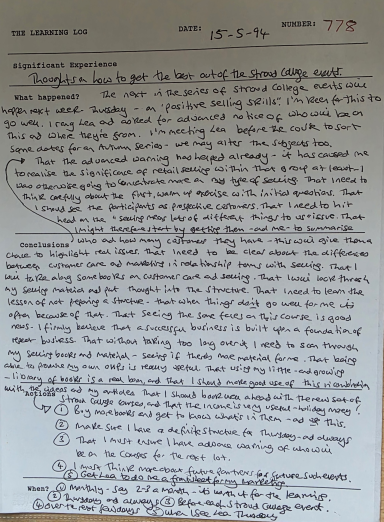 THE LEARNING LOG DATE: 15-5-94 NUMBER: 778
Significant Experience
Thoughts on how to get the best out of the Stroud College events.
What happened? The next in the series of Stroud College events will
happen next week Thursday - on 'positive selling skills'. I'm keen for this to
go well. I rang Lea and asked for advanced notice of who will be on
this and where they're from. I'm meeting Lea before the course to sort
some dates for an Autumn series - we may alter the subjects too.
That the advanced warning has helped already - it has caused me
to realise the significance of retail selling within that group at least - I
was otherwise going to concentrate more on type of selling. That I need to
think carefully about the first, warm up exercise with limited questions. That
I should see the participants as prospective customers. That I need to hit
head on the 'selling means lots of different things to us' issue. That
I might therefore start by getting them - and me - to summarise
Conclusions who and how many customers they have - this will give them a
chance to highlight real issues. That I need to be clear about the difference
between customer care and marketing in relationship terms with selling. That I
to take along some books on customer care and selling. That I must thrash
my selling material and put thought into the structure. That I need to learn the
lesson of not preparing a structure - that when things don't go well for me it's
often because of that. That seeing the same faces on this course is good
news - I firmly believe that a successful business is built upon a foundation of
repeat business. That without taking too long over it, I need to scan through
my selling books and material - seeing if there's more material for me. That being
able to provide my own OHPs is really useful. That using my little - and growing
- library of books is a real boon, and that I should make good use of this in conjunction
with the videos and my articles. That I should book Lea ahead with the new set of
Actions Stroud College courses, and that the income is very useful - holiday money!
① Buy more books and get to know what's in them - and this.
② Make sure I have a definite structure for Thursday - and always
③ That I must ensure I have advance warning of who will
be on the courses for the next lot.
④ I must think more about future partners for future such events.
⑤ Get Lea to do me a for my marketing
When? ① Monthly - say 2-3 a month - it's worth it for the learning.
② Thursday and always ③ Before each Stroud College event.
④ Over the next few days ⑤ When I see Lea Thursday